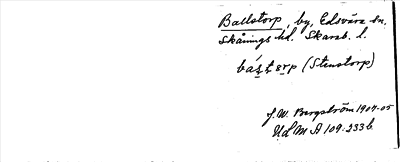 Ballstorp, by, Edsvära sn.
Skånings hd. Skarab. l.
bástorp (Stenstorp)
J. W. Bergström 1904-05
ULMA 109:233 b